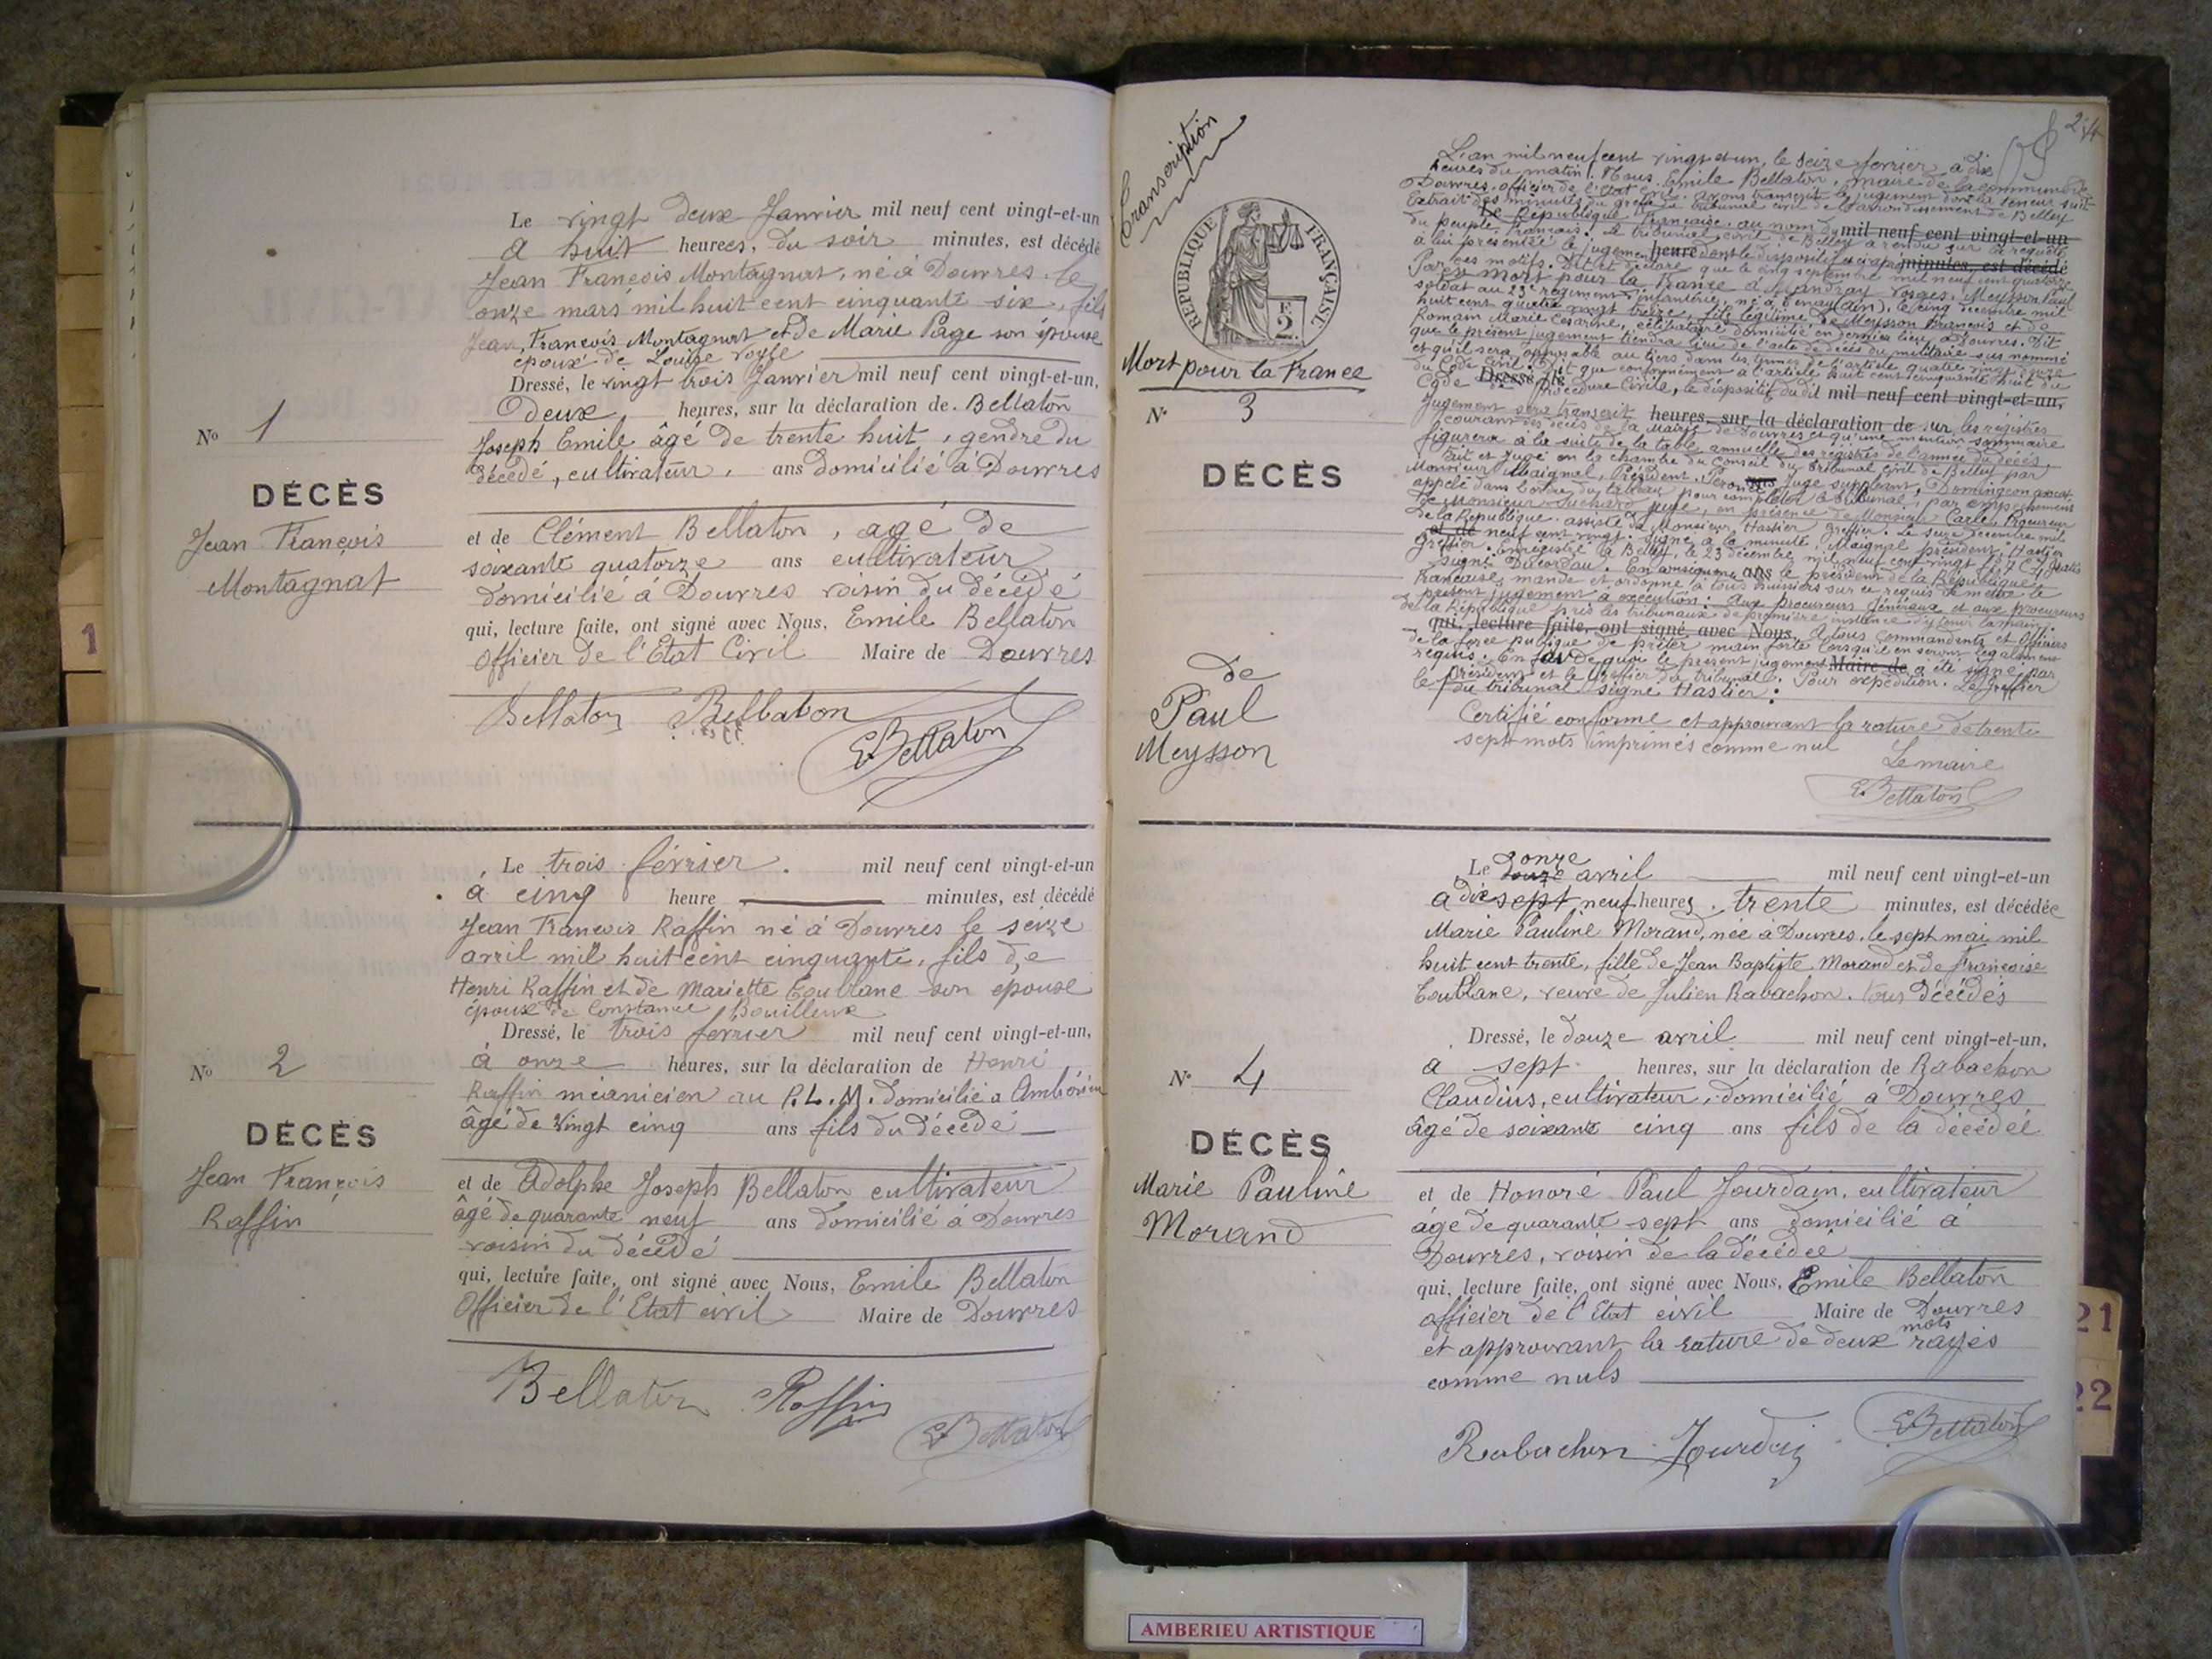 Le vingt deux Janvier mil neuf cent vingt-et-un
à huit heurees, du soir minutes, est décédé
Jean François Montagnat, né à Douvres, le
onze mars mil huit cent cinquante six, fils
Jean François Montagnat et de Marie Page son épouse
époux de Louise
Dressé, le vingt trois Janvier mil neuf cent vingt-et-un,
Deux heures, sur la déclaration de Bellaton
Joseph Emile âgé de trente huit, gendre du
décédé, cultivateur, ans domicilié à Douvres
et de Clément Bellaton, agé de
soixante quatorze ans cultivateur
domicilié à Douvres voisin du décédé
qui, lecture faite, ont signé avec Nous, Emile Bellaton
Officier de l'Etat Civil Maire de Douvres
Bellaton Bellaton
E. Bellaton
No 1
DÉCÈS
Jean François
Montagnat
1
Le trois février. mil neuf cent vingt-et-un
à cinq heure minutes, est décédé
Jean François Raffin né à Douvres le seize
avril mil huit cent cinquante, fils de
Henri Raffin et de Mariette Coublane son epouse
époux de Constance Bouilleux
Dressé, le trois fevrier mil neuf cent vingt-et-un,
à onze heures, sur la déclaration de Henri
Raffin mécanicien au P.L.M. domicilié a Ambérieu
âgé de vingt cinq ans fils du décédé
et de Adolphe Joseph Bellaton cultivateur
âgé de quarante neuf ans domicilié à Douvres
voisin du décédé
qui, lecture faite, ont signé avec Nous, Emile Bellaton
Officier de l'Etat civil Maire de Douvres
Bellaton Raffin
E. Bellaton
No 2
DÉCÈS
Jean François
Raffin
Transcription
RÉPUBLIQUE FRANÇAISE
E.
2.
Mort pour la France
No 3
DÉCÈS
de
Paul
Meysson
L'an mil neuf cent vingt et un, le seize fevrier à dix
heures du matin. Nous, Emile Bellaton, maire de la commune de
Douvres, officier de l'Etat civil avons transcrit le jugement dont la teneur suit
Extrait des minutes du greffe du tribunal civil de l'arrondissement de Belley
La République Française, au nom du mil neuf cent vingt-et-un
du peuple Français. le tribunal civil de Belley a rendu sur la requête
à lui présentée le jugement heure dont le dispositif minutes, est décédé
Par ces motifs. Dit et déclare que le cinq septembre mil neuf cent quatorze
est mort pour la France à Mandray Vosges, Meysson Paul
soldat au 23e régiment d'infanterie, né à (Ain), le cinq decembre mil
huit cent quatre vingt treize, fils légitime de Meysson François et de
Romain Marie Césarine, célibataire domicilié en dernier lieu à Douvres. Dit
que le présent jugement tiendra lieu de l'acte de décès du militaire sus nommé
et qu'il sera opposable au tiers dans les termes de l'article quatre vingt onze
du Code Civil. Dit que conformément à l'article huit cent cinquante huit du
Code Dressé, le de Procédure Civile, le dispositif du dit mil neuf cent vingt-et-un,
Jugement sera transcrit heures, sur la déclaration de sur les registres
courant des décès de la Mairie de Douvres et qu'une mention sommaire
figurera à la suite de la table annuelle des registres de l'année du décès.
Fait et jugé en la chambre du Conseil du tribunal civil de Belley par
Monsieur Maignal, Président, Juge suppléant, Domingeon avocat
appelé dans l'ordre du tableau pour compléter le tribunal, par empêchement
de Monsieur juge, en présence de Monsieur Carle, Procureur
de la République assisté de Monsieur Hastier greffier. Le seize decembre mil
et de neuf cent vingt. Signé à la minute, Maignal président, Hastier
greffier. Enregistré à Belley, le 23 décembre mil neuf cent vingt
signé En conséquence ans le président de la République
Française, mande et ordonne à tous huissiers sur ce requis de mettre le
présent jugement à execution: Aux procureurs généraux et aux procureurs
de la République près les tribunaux de première instance d'y tenir la main.
qui, lecture faite, ont signé avec Nous, A tous commandants et officiers
de la force publique de prêter main forte lorsqu'il en seront légalement
requis. En foi de quoi le présent jugement Maire de a été signé par
le président et le greffier du tribunal. Pour expédition. Le greffier
du tribunal. Signé Hastier:
Certifié conforme et approuvant la rature de trente
sept mots imprimés comme nul
Le maire
E. Bellaton
Le douze onze avril mil neuf cent vingt-et-un
à dix sept neuf heures, trente minutes, est décédée
Marie Pauline Morand, née à Douvres, le sept mai mil
huit cent trente, fille de Jean Baptiste Morand et de Françoise
Coublane, veuve de Julien Rabachon. tous décédés
Dressé, le douze avril mil neuf cent vingt-et-un,
a sept heures, sur la déclaration de Rabachon
Claudius, cultivateur, domicilié à Douvres
âgé de soixante cinq ans fils de la décédée
et de Honoré Paul Jourdain, cultivateur
âgé de quarante sept ans domicilié à
Douvres, voisin de la décédée
qui, lecture faite, ont signé avec Nous, Emile Bellaton
officier de l'Etat civil Maire de Douvres
et approuvant la rature de deux mots rayés
comme nuls
Rabachon Jourdain
E. Bellaton
No 4
DÉCÈS
Marie Pauline
Morand
21
22
AMBERIEU ARTISTIQUE